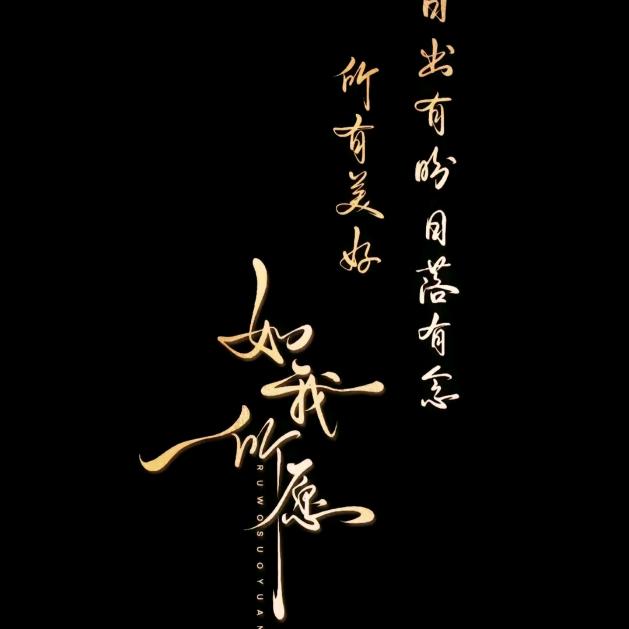 日出有盼日落有念
所有美好
如我所愿
RUWOSUOYUAN